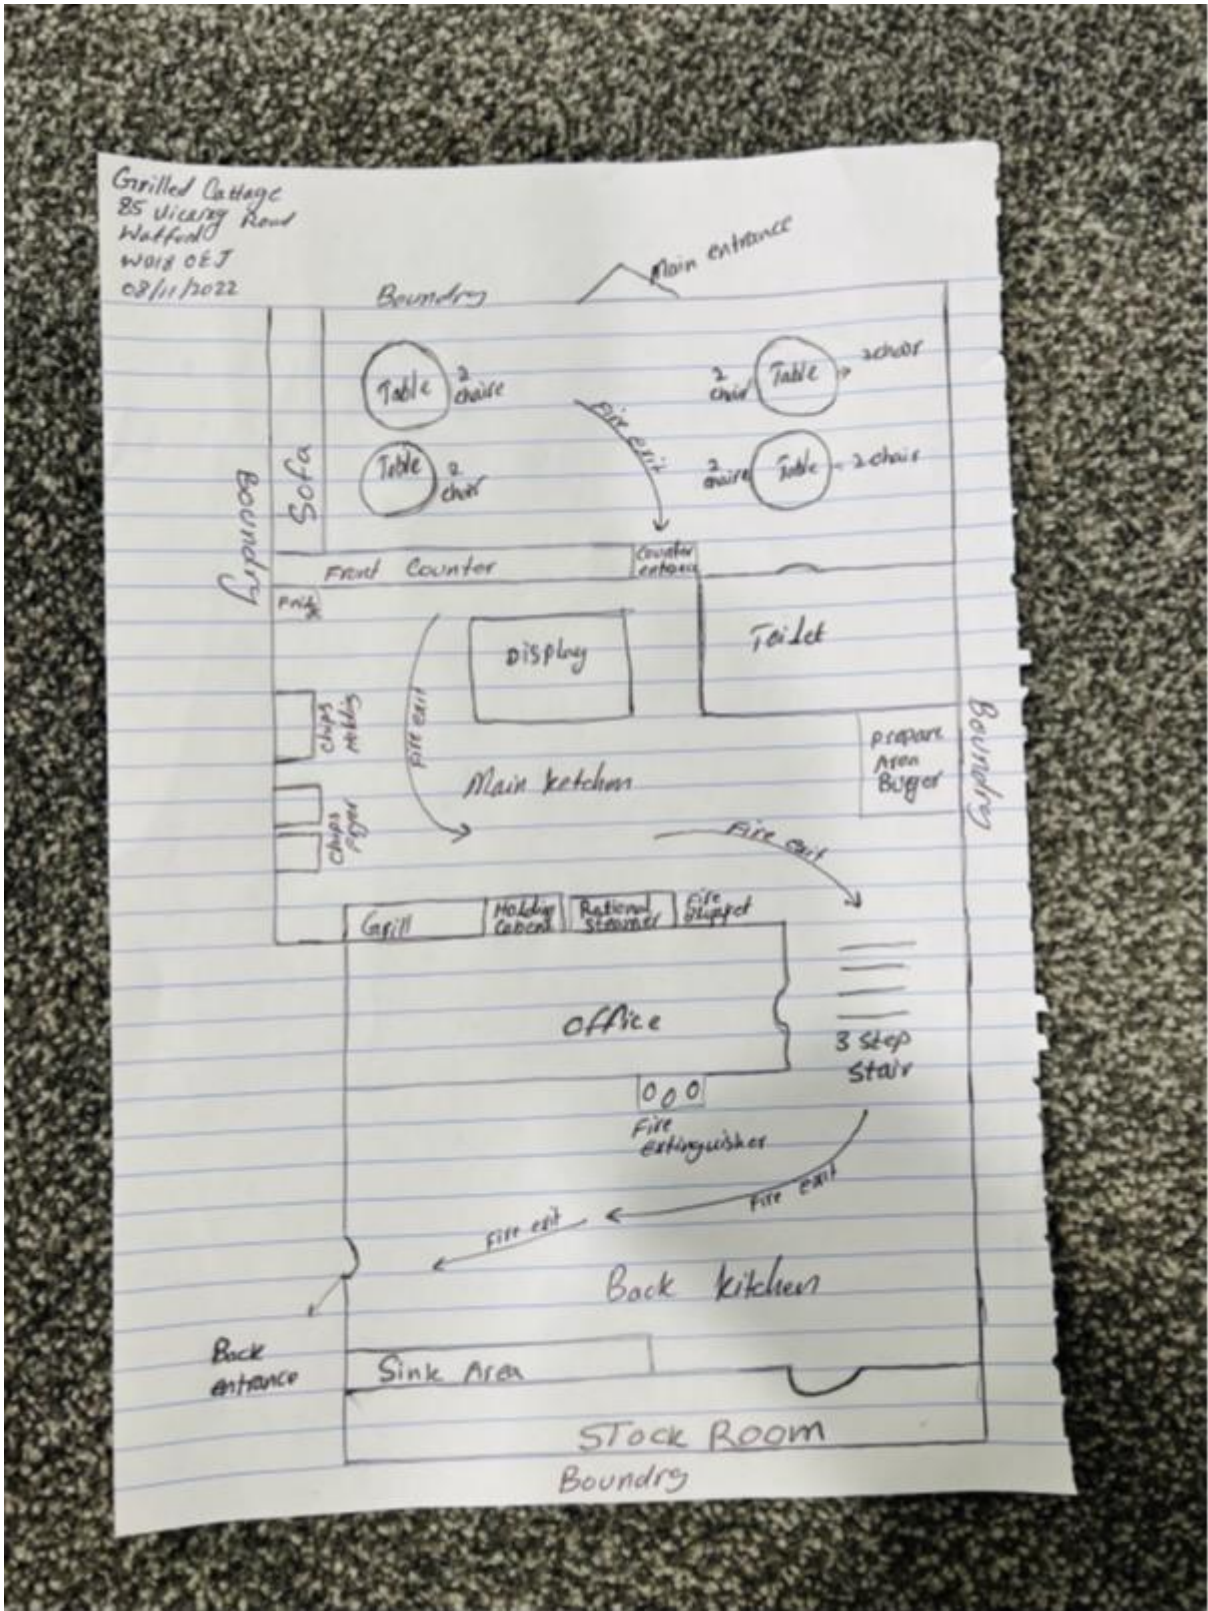 Grilled Cottage
85 Vicarag Road
Watford
WD18 0EJ
08/11/2022
Main entrance
Boundry
Table
2
chaire
Table
2
chair
2
chair
Table
2 chair
2
chaire
Table
2 chair
Fire exit
Sofa
Boundry
Front Counter
Counter
Display
Toilet
Chips
Holding
Fire exit
Main ketchen
Prepare
Area
Burger
Boundry
Chips
Fryer
Fire exit
Grill
Holding
Rational
Steamer
Fire
Office
3 Step
Stair
Fire
extinguisher
Fire exit
Fire exit
Back kitchen
Back
entrance
Sink Area
Stock Room
Boundry